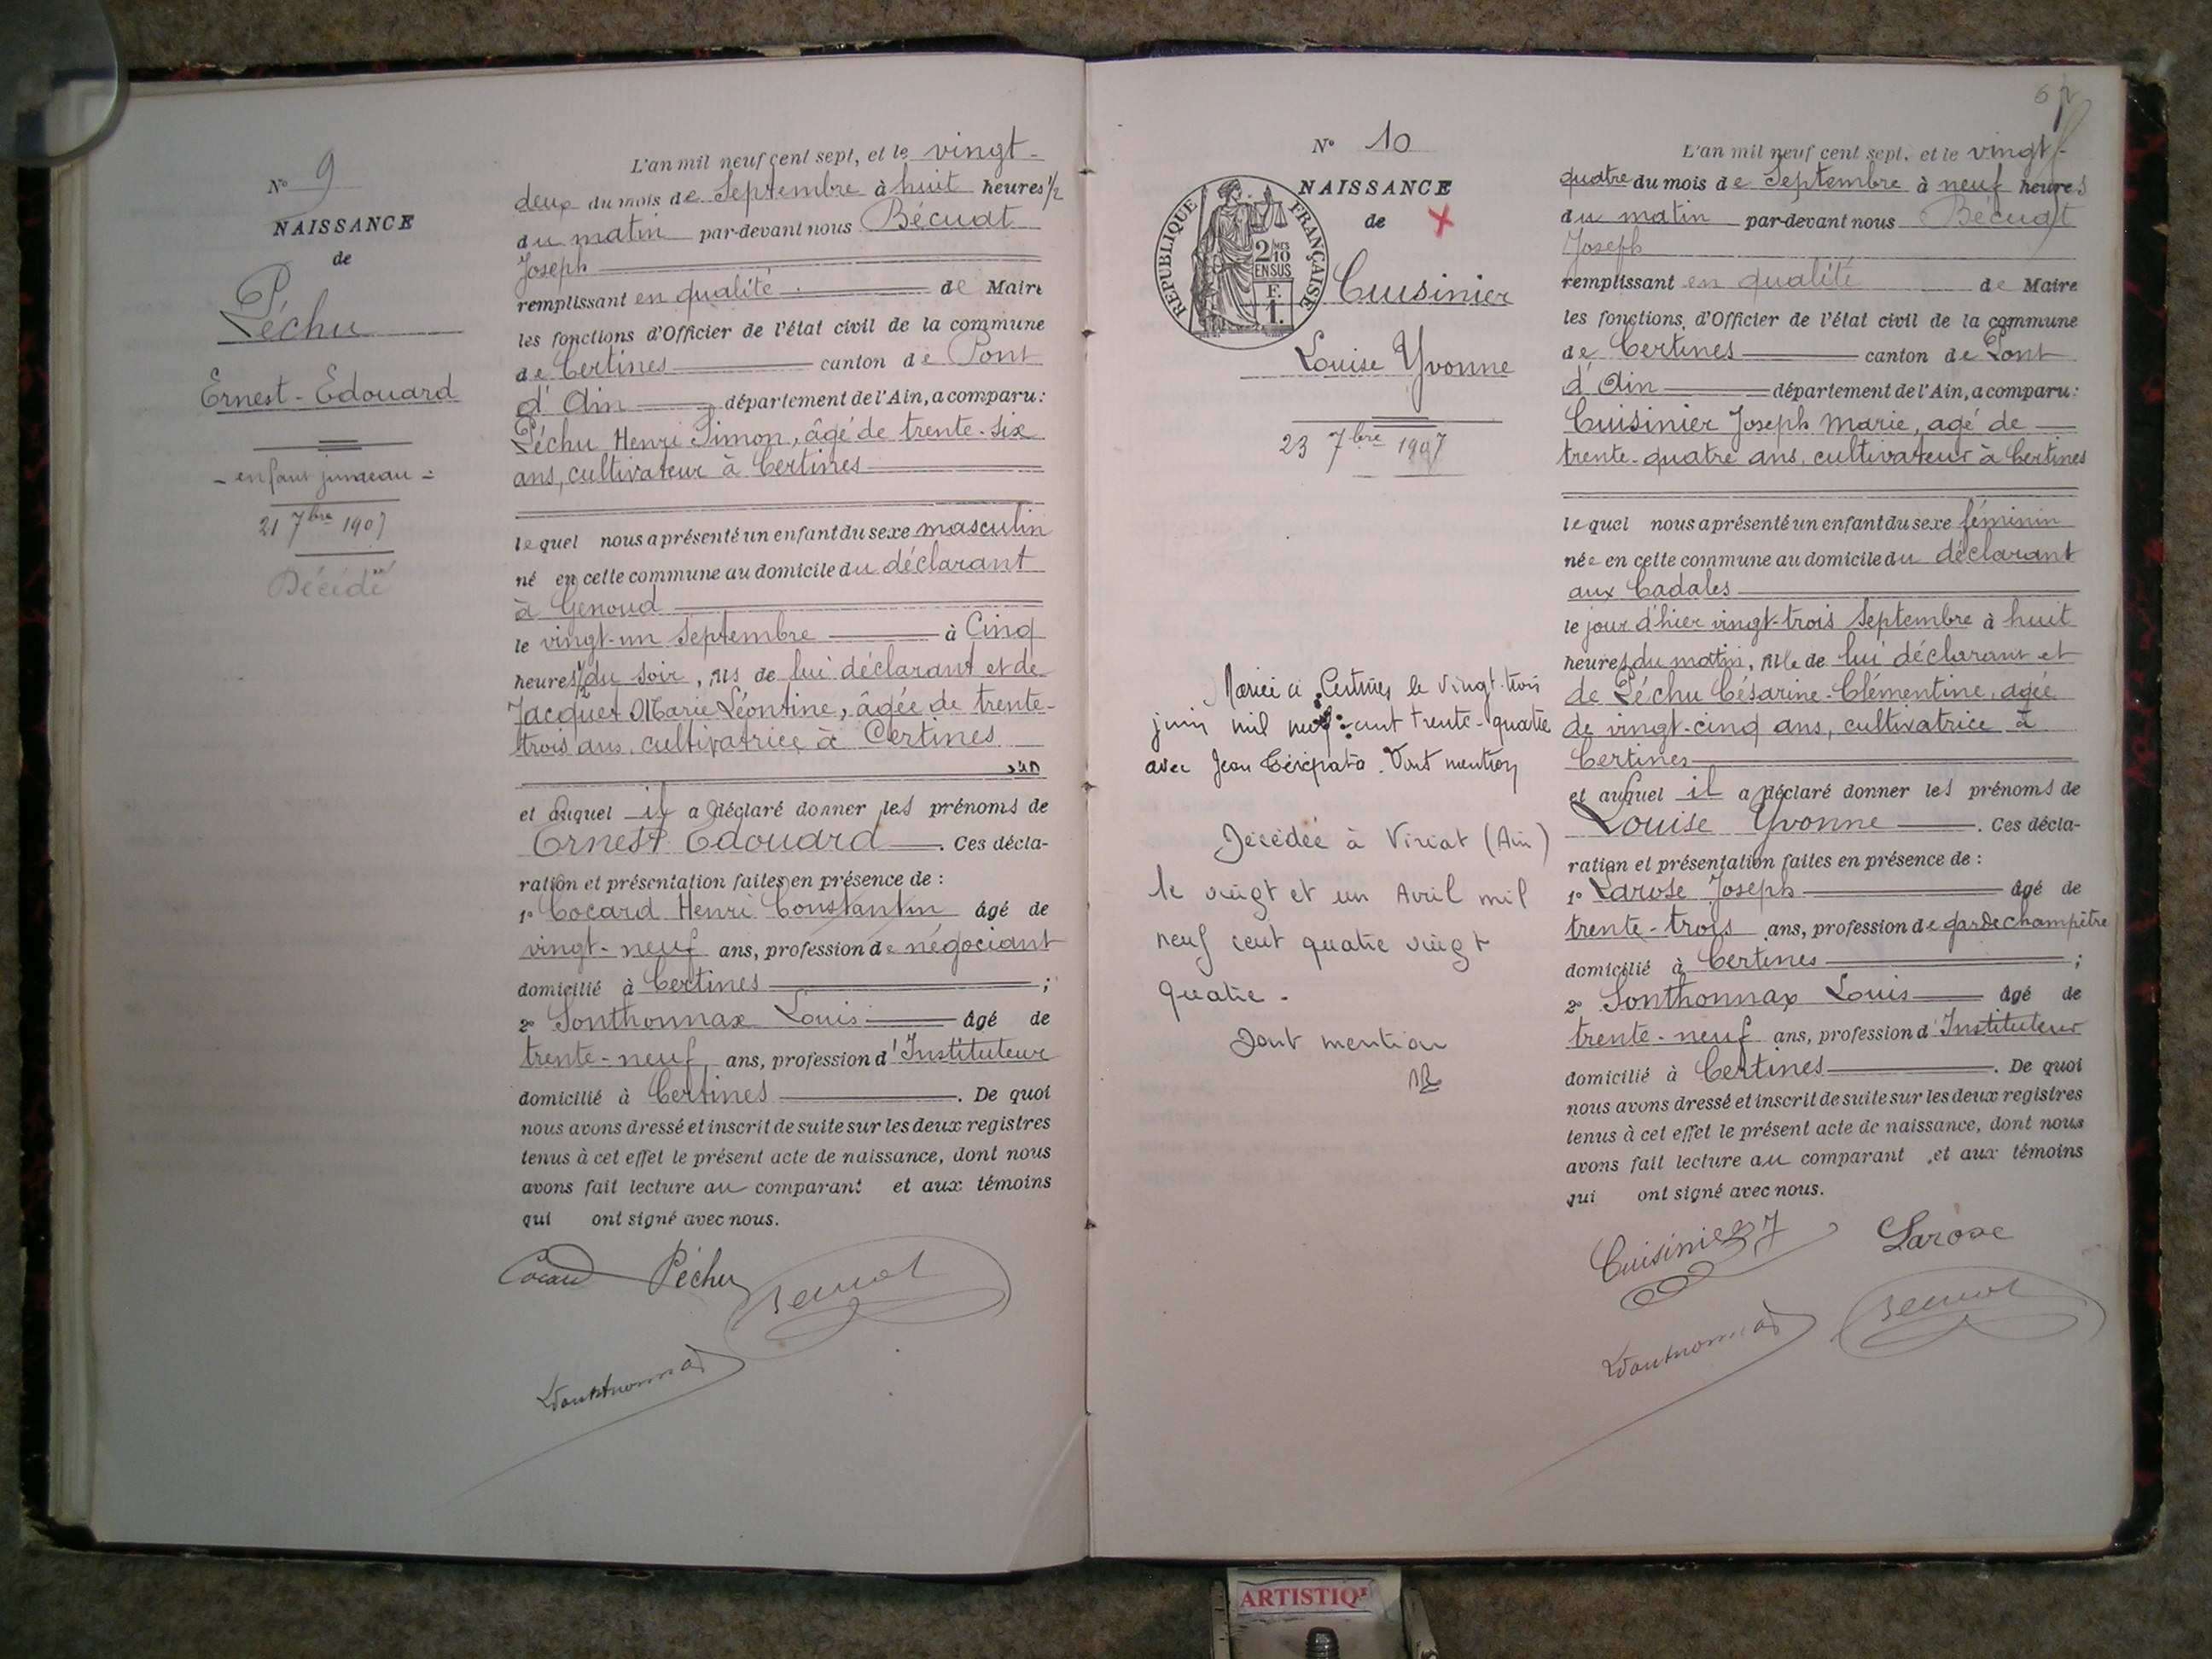 N° 9
NAISSANCE
de
Péchu
Ernest-Edouard
- enfant jumeau -
21 7bre 1907
Décédé
L'an mil neuf cent sept, et le vingt-
deux du mois de Septembre à huit heures 1/2
du matin par-devant nous Bécuat
Joseph
remplissant en qualité de Maire
les fonctions d'Officier de l'état civil de la commune
de Certines canton de Pont
d'Ain département de l'Ain, a comparu:
Péchu Henri Simon, âgé de trente-six
ans, cultivateur à Certines
lequel nous a présenté un enfant du sexe masculin
né en cette commune au domicile du déclarant
à Genoud
le vingt-un Septembre à Cinq
heures 1/2 du soir, fils de lui déclarant et de
Jacquet Marie Léontine, âgée de trente-
trois ans, cultivatrice à Certines
et auquel il a déclaré donner les prénoms de
Ernest Edouard. Ces décla-
ration et présentation faites en présence de :
1° Cocard Henri Constantin âgé de
vingt-neuf ans, profession de négociant
domicilié à Certines ;
2° Sonthonnax Louis âgé de
trente-neuf ans, profession d'Instituteur
domicilié à Certines. De quoi
nous avons dressé et inscrit de suite sur les deux registres
tenus à cet effet le présent acte de naissance, dont nous
avons fait lecture au comparant et aux témoins
qui ont signé avec nous.
Cocard Péchu Bécuat
LSonthonnax
N° 10
NAISSANCE
de
RÉPUBLIQUE FRANÇAISE
2 MES
10
EN SUS
F.
1.
Cuisinier
Louise Yvonne
23 7bre 1907
Mariée à Certines le vingt-trois
juin mil neuf cent trente-quatre
avec Jean . Dont mention
Décédée à Viriat (Ain)
le vingt et un Avril mil
neuf cent quatre vingt
quatre.
Dont mention
L'an mil neuf cent sept, et le vingt-
quatre du mois de Septembre à neuf heures
du matin par-devant nous Bécuat
Joseph
remplissant en qualité de Maire
les fonctions d'Officier de l'état civil de la commune
de Certines canton de Pont
d'Ain département de l'Ain, a comparu:
Cuisinier Joseph Marie, agé de
trente-quatre ans, cultivateur à Certines
lequel nous a présenté un enfant du sexe féminin
née en cette commune au domicile du déclarant
aux Cadales
le jour d'hier vingt-trois Septembre à huit
heures du matin, fille de lui déclarant et
de Péchu Césarine-Clémentine, agée
de vingt-cinq ans, cultivatrice à
Certines
et auquel il a déclaré donner les prénoms de
Louise Yvonne. Ces décla-
ration et présentation faites en présence de :
1° Larose Joseph âgé de
trente-trois ans, profession de garde champêtre
domicilié à Certines ;
2° Sonthonnax Louis âgé de
trente-neuf ans, profession d'Instituteur
domicilié à Certines. De quoi
nous avons dressé et inscrit de suite sur les deux registres
tenus à cet effet le présent acte de naissance, dont nous
avons fait lecture au comparant et aux témoins
qui ont signé avec nous.
Cuisinier J Larose
LSonthonnax Bécuat
ARTISTIQ